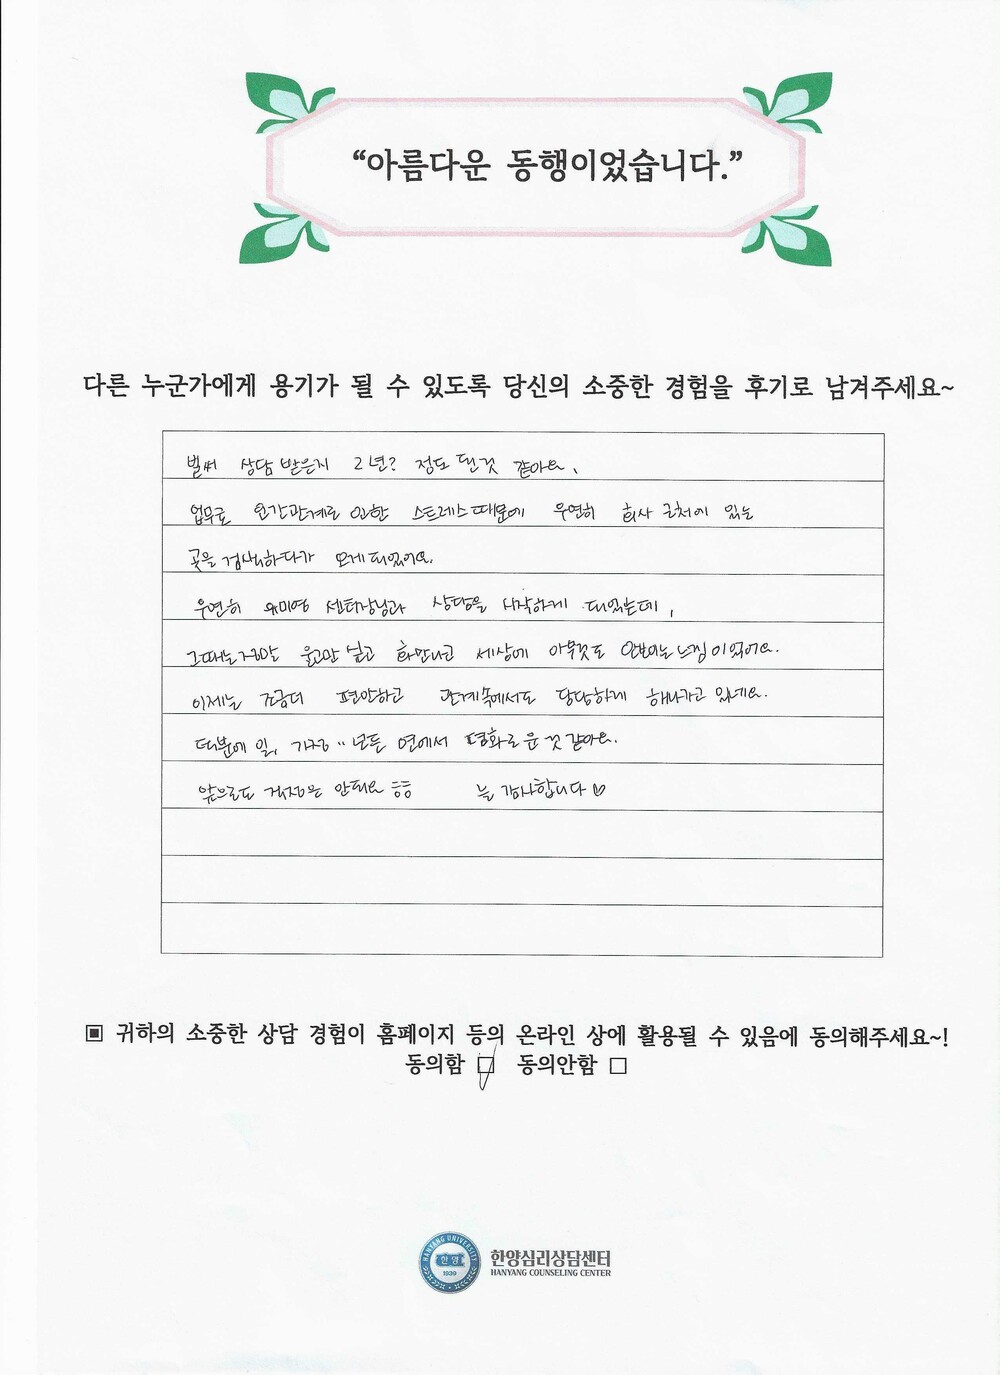 “아름다운 동행이었습니다.”
다른 누군가에게 용기가 될 수 있도록 당신의 소중한 경험을 후기로 남겨주세요~
벌써 상담 받은지 2년? 정도 된것 같아요.
업무로 인간관계로 인한 스트레스때문에 우연히 회사 근처에 있는
곳을 검색하다가 오게되었어요.
우연히 센터장님과 상담을 시작하게 되었는데,
그때는 정말 울고만 싶고 화만나고 세상에 아무것도 안보이는 느낌이었어요.
이제는 조금더 편안하고 관계속에서도 당당하게 해나가고 있네요.
덕분에 일, 가정.. 모든 면에서 평화로운 것 같아요.
앞으로도 걱정은 안돼요 ㅎㅎ 늘 감사합니다 ♡
▣ 귀하의 소중한 상담 경험이 홈페이지 등의 온라인 상에 활용될 수 있음에 동의해주세요~!
동의함 ☑ 동의안함 □
HANYANG UNIVERSITY
한양
1939
한양심리상담센터
HANYANG COUNSELING CENTER